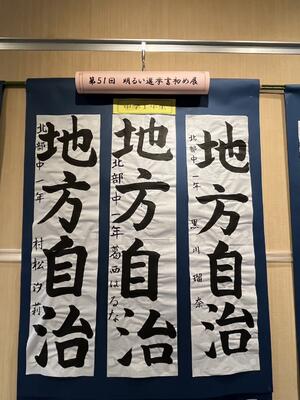 第51回 明るい選挙書初め展
地方自治
北部中一年 黒川瑠奈
地方自治
北部中一年 葛西はるな
地方自治
北部中一年 村松汐莉